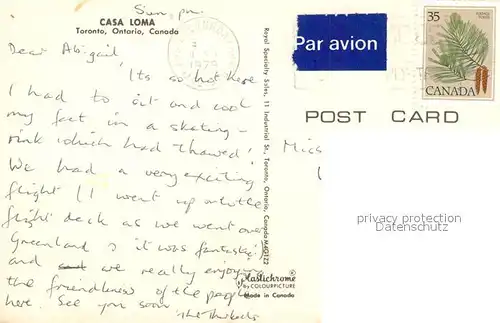 Sun. pm.
CASA LOMA
Toronto, Ontario, Canada
Dear Abigail,
Its so hot here
I had to sit and cool
my feet in a skating-
rink which had thawed!
We had a very exciting
flight (I went up on the
flight deck as we went over
Greenland & it was fantastic)
and we really enjoying
the friendliness of the people
here. See you soon
Royal Specialty Sales, 11 Industrial St., Toronto, Ontario, Canada M4G1Z2
Plastichrome®
by COLOURPICTURE
Made in Canada
Par avion
35
CANADA
POST CARD
Miss
privacy protection
Datenschutz